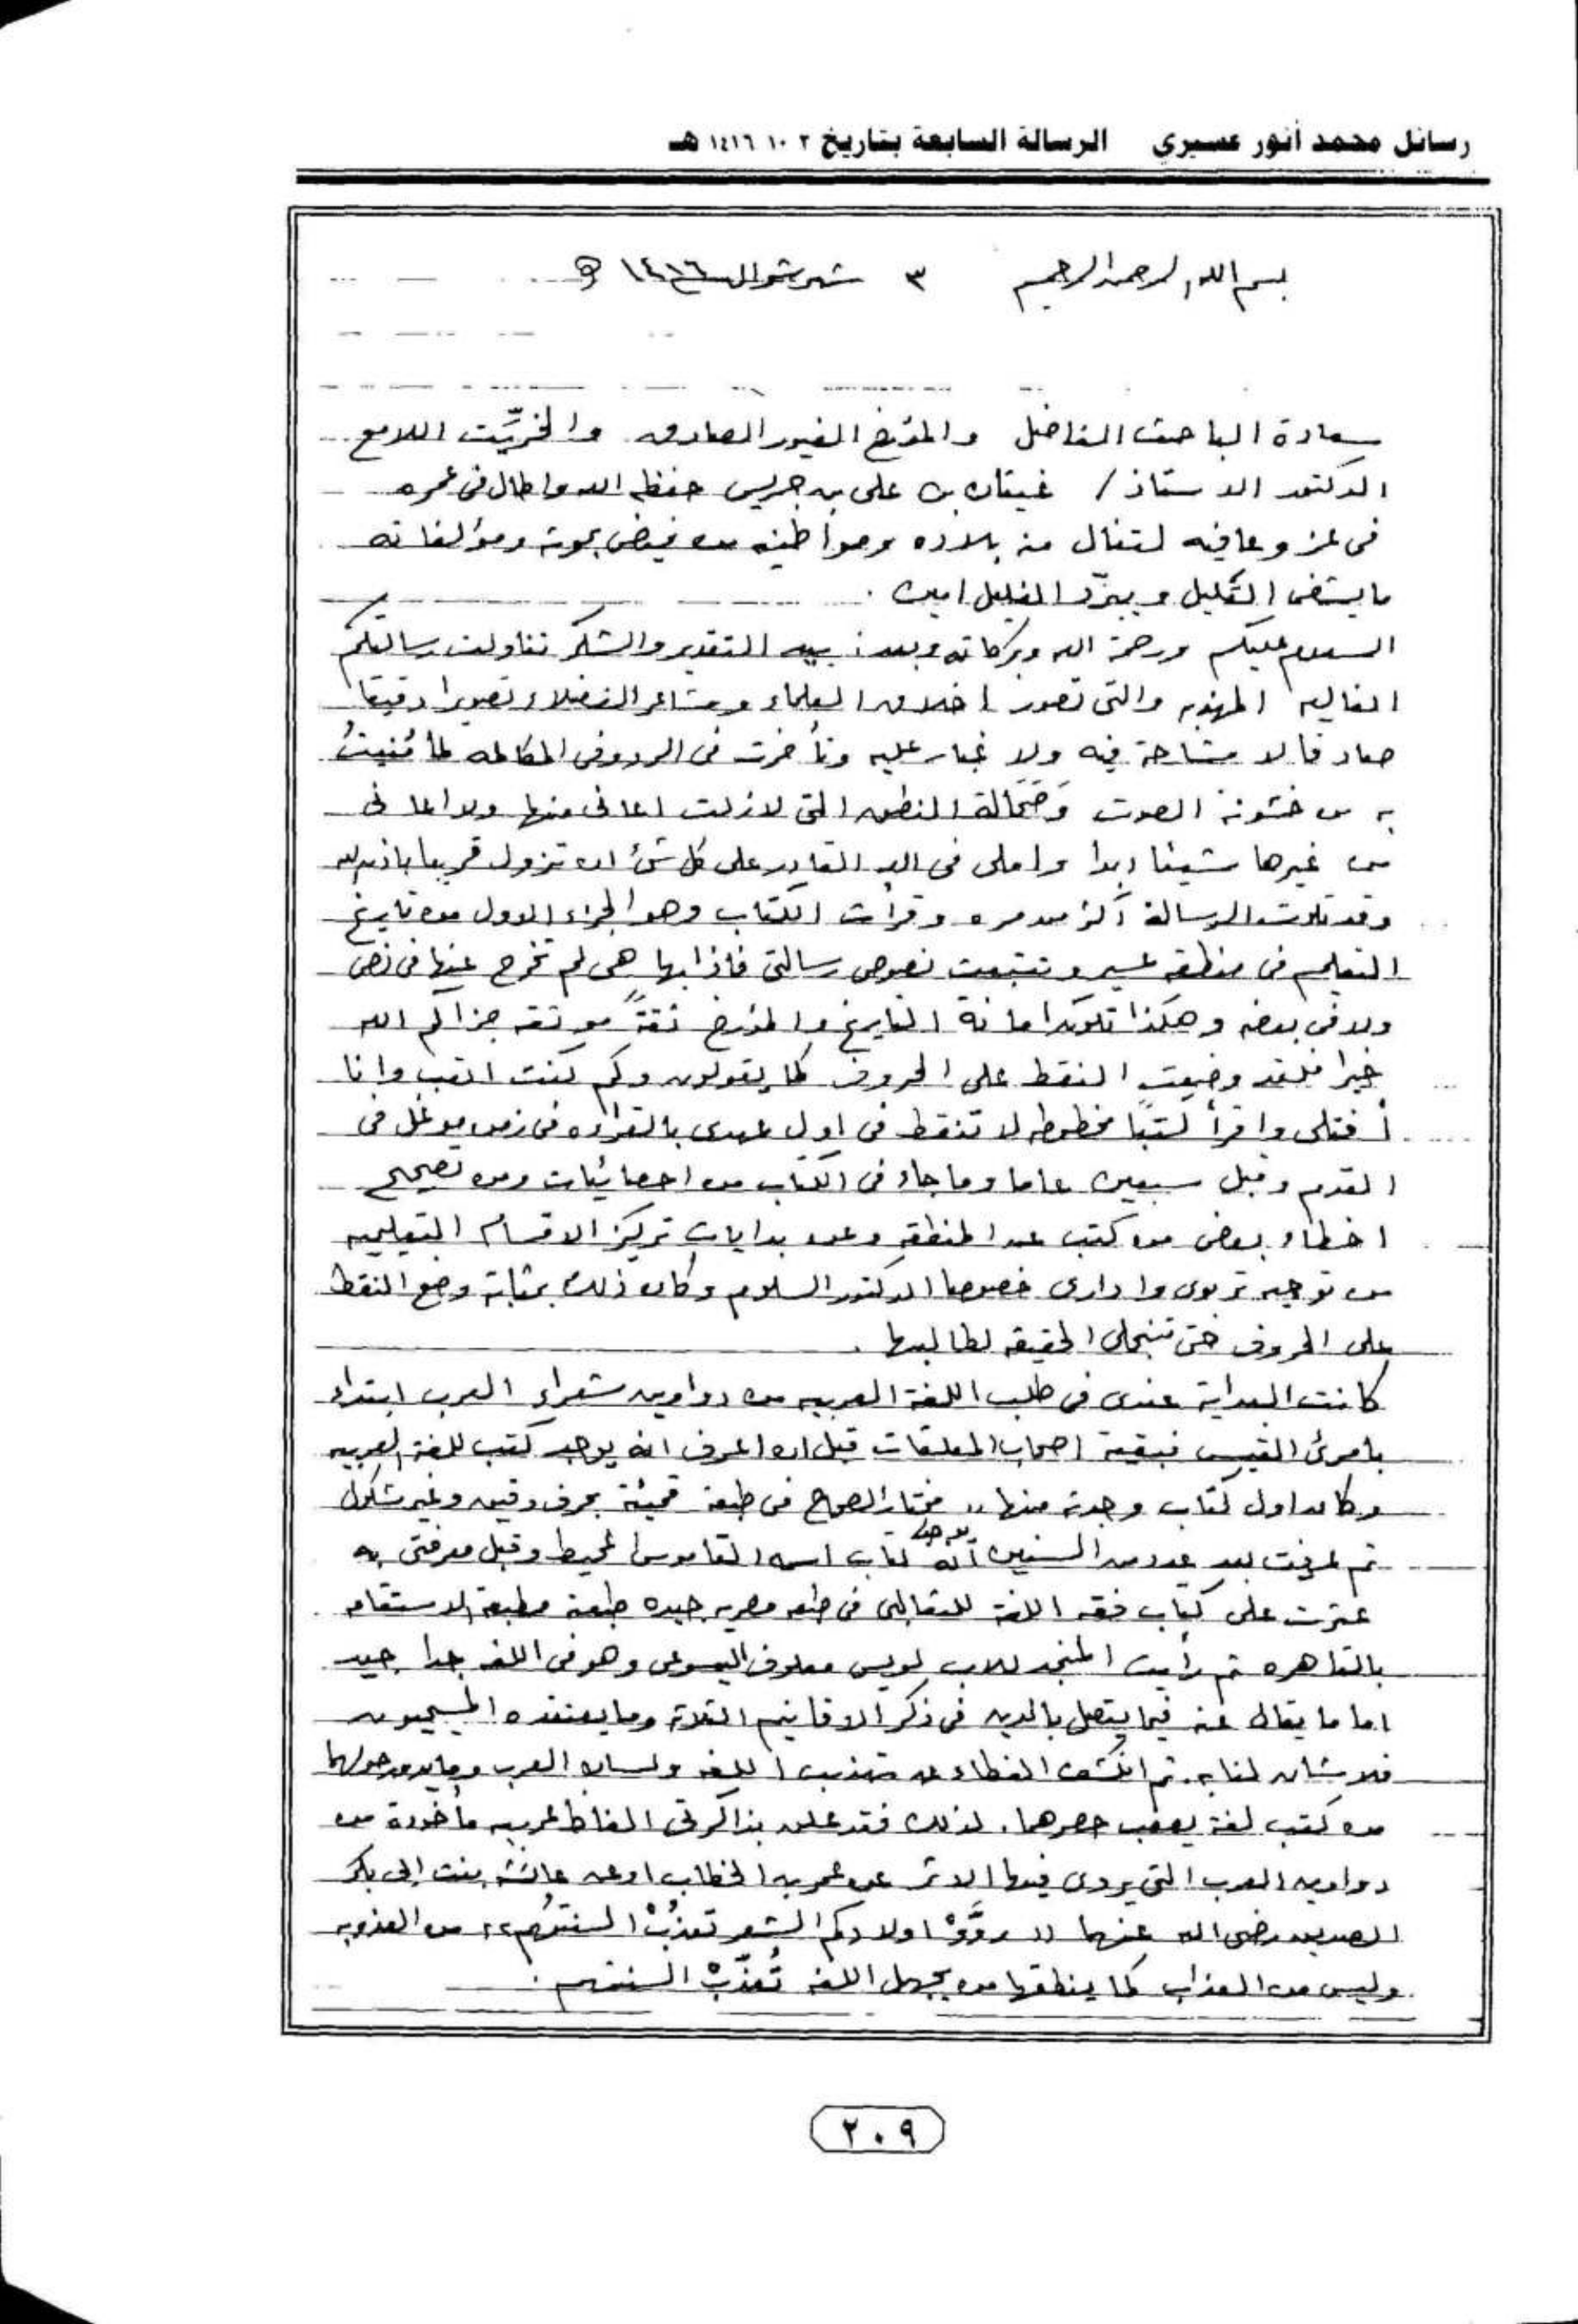 رسائل محمد أنور عسيري الرسالة السابعة بتاريخ ٣ ١٠ ١٤١٦ هـ
بسم الله الرحمن الرحيم ٣ شهر شوال ١٤١٦ هـ
سعادة الباحث الفاضل والمؤرخ الغيور الصادق والخرِّيت اللامع
الدكتور الاستاذ / غيثان بن على بن جريس حفظه الله واطال فى عمره
فى عز وعافيه لتنال منه بلاده ومواطنيه من فيض بحوثه ومؤلفاته
ما يشفى الغليل ويبرّد الغليل امين .
السلام عليكم ورحمة الله وبركاته وبعد : بيد التقدير والشكر تناولت رسالتكم
الغاليه المهذبه والتى تصور اخلاق العلماء ومشاعر الفضلاء تصويرا دقيقا
صادقا لا مشاحة فيه ولا غبار عليه وتأخرت فى الرد وفى المكالمه لما مُنيتُ
به من خشونة الصوت وضحالة النطق التى لازلت اعانى منها ولا اعانى
من غيرها شيئا ابدا واملى فى الله القادر على كل شئ ان تزول قريبا باذن الله
وقد تلوت الرسالة اكثر من مره وقرأت الكتاب وهو الجزء الاول من تاريخ
التعليم فى منطقة عسير وتتبعت نصوص رسالتى فاذا بها هى لم تخرج عنها فى نص
ولا فى بعضه وهكذا تكون امانة التاريخ والمؤرخ ثقةً موثقه جزاكم الله
خيرا فلقد وضعت النقط على الحروف كما يقولون وكم كنت اتعب وانا
أفتلى واقرأ كتبًا مخطوطه لا تنقط فى اول عهدى بالقراءه فى زمن موغل فى
القدم وقبل سبعين عاما وما جاء فى الكتاب من احصائيات ومن تصحيح
اخطاء بعض من كتب عن المنطقه وعن بدايات تركيز الاقسام التعليميه
من توجيه تربوى وادارى خصوصا الدكتور السلوم وكان ذلك بمثابة وضع النقط
على الحروف حتى تنجلى الحقيقه لطالبها .
كانت البداية عندى فى طلب اللغة العربيه من دواوين شعراء العرب ابتداء
بامرئ القيس فبقية اصحاب المعلقات قبل ان اعرف انه يوجد كتب للغة العربيه
وكان اول كتاب وجدته منها ,, مختار الصحاح فى طبعة قميئة بحرف دقيق وغير مشكول
ثم عرفت بعد عدد من السنين انه يوجد كتاب اسمه القاموس المحيط وقبل معرفتى به
عثرت على كتاب فقه اللغة للثعالبى فى طبعه مصريه جيده طبعة مطبعة الاستقامه
بالقاهره ثم رأيت المنجد للاب لويس معلوف اليسوعى وهو فى اللغه جدا جيد
اما ما يقال عنه فيما يتصل بالدين فى ذكر الاقانيم الثلاثه وما يعتقده المسيحيون
فلا شان لنا به. ثم انكشف الغطاء عن تهذيب اللغه ولسان العرب وما يدور حولهما
من كتب لغة يصعب حصرها. لذلك فقد علق بذاكرتى الفاظ عربيه مأخوذة من
دواوين العرب التى يروى فيها الاثر عن عمر بن الخطاب او عن عائشة بنت ابى بكر
الصديق رضى الله عنهما (( روَّوْا اولادكم الشعر تعذُبْ السنتُهم )) من العذوبه
وليس من العذاب كما ينطقها من يجهل اللغه تُعذّبْ السنتهم .
٢٠٩